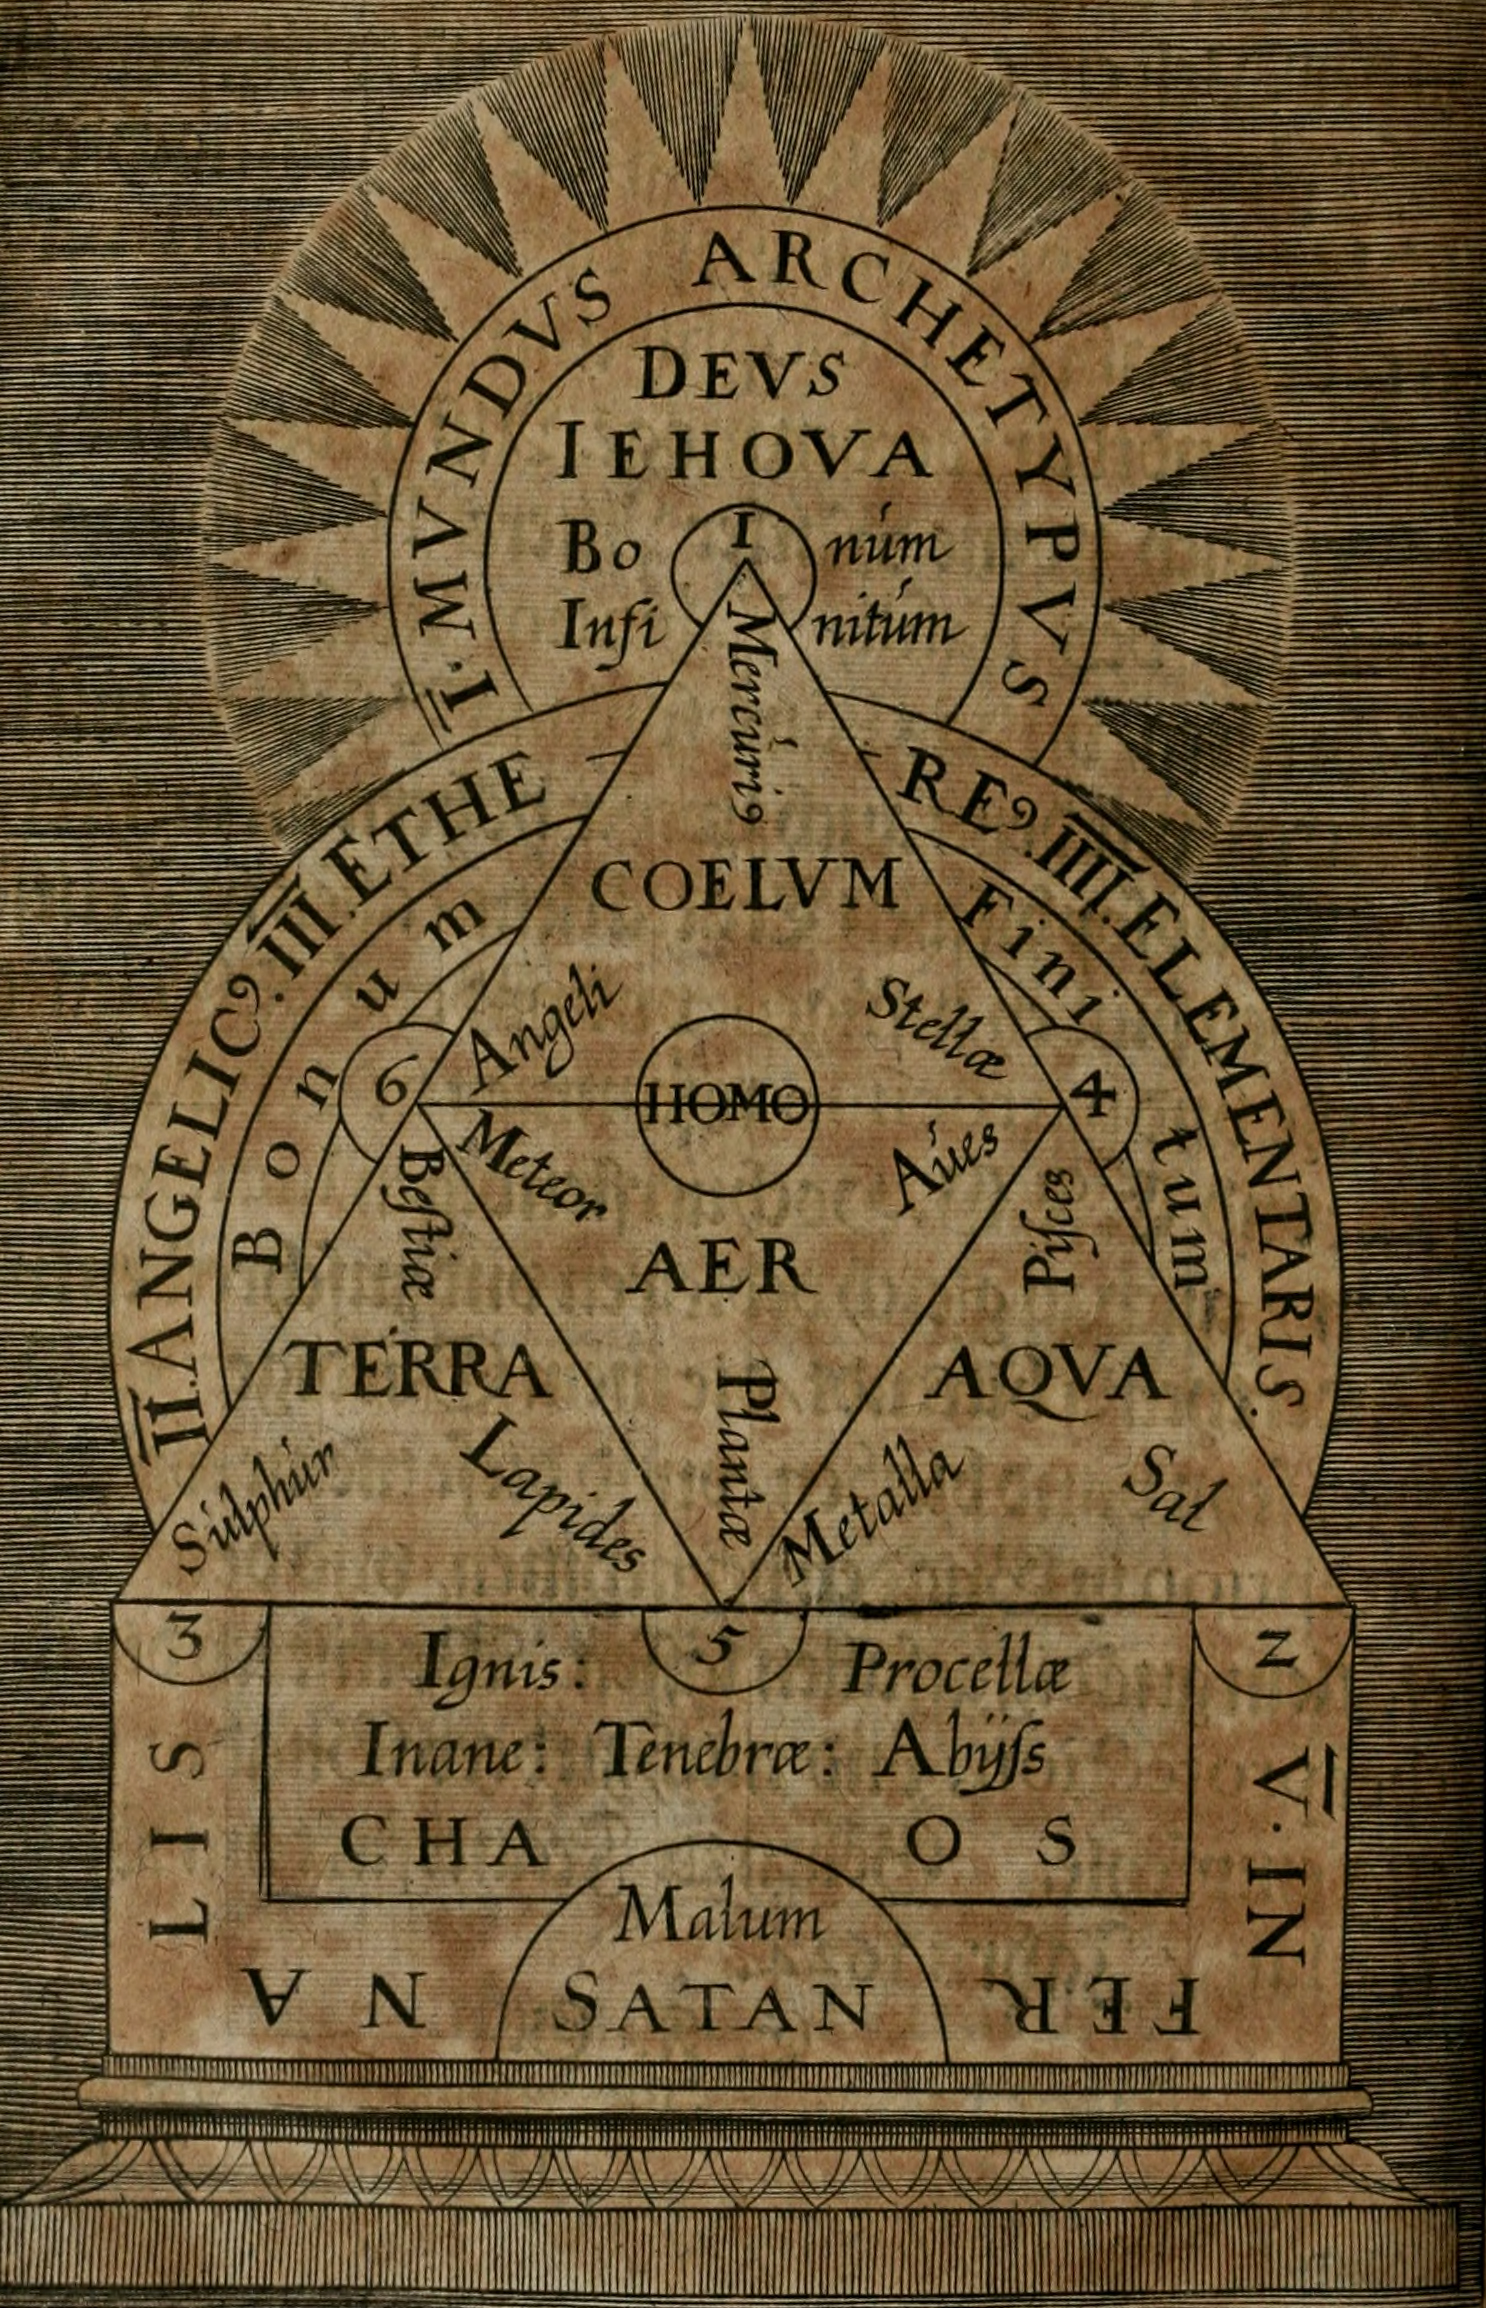 I. MVNDVS ARCHETYPVS
DEVS
IEHOVA
Bo núm
Infi nitúm
1
Mercúriꝰ
II. ANGELICꝰ. III. ETHE REꝰ. IIII. ELEMENTARIS.
Bonum
Fini tum
COELVM
Angeli
Stellæ
6
HOMO
4
Meteor
Aúes
Bestiæ
Pisces
AER
TERRA
AQVA
Plantæ
Súlphúr
Lapides
Metalla
Sal
3
5
2
Ignis: Procellæ
Inane: Tenebræ: Abÿſs
CHA OS
Malum
SATAN
V. IN FER NA LIS